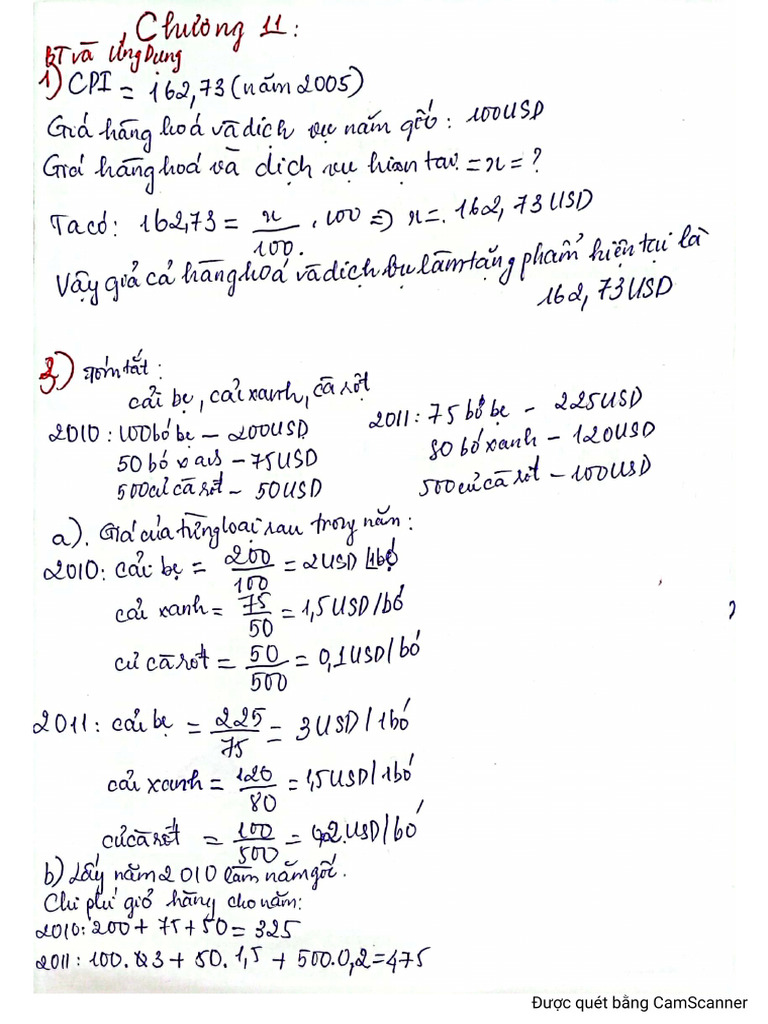 Chương 11:
BT và Ứng Dụng
1) CPI = 162,73 (năm 2005)
Giá hàng hoá và dịch vụ năm gốc: 100USD
Giá hàng hoá và dịch vụ hiện tại = x = ?
Ta có: 162,73 = x/100 . 100 => x = 162,73 USD
Vậy giả cả hàng hoá và dịch bụ làm tặng phẩm hiện tại là
162,73USD
3) Tóm tắt:
cải bẹ, cải xanh, cà rốt
2010: 100bó bẹ – 200USD
50 bó xanh – 75USD
500củ cà rốt – 50USD
2011: 75 bó bẹ – 225USD
80 bó xanh – 120USD
500củ cà rốt – 100USD
a). Giá của từng loại rau trong năm:
2010: cải bẹ = 200/100 = 2USD/1bó
cải xanh = 75/50 = 1,5USD/bó
củ cà rốt = 50/500 = 0,1USD/bó
2011: cải bẹ = 225/75 = 3USD/1bó
cải xanh = 120/80 = 1,5USD/1bó
củ cà rốt = 100/500 = 0,2USD/bó
b) Lấy năm 2010 làm năm gốc.
Chi phí giỏ hàng cho năm:
2010: 200 + 75 + 50 = 325
2011: 100.3 + 50.1,5 + 500.0,2 = 475
Được quét bằng CamScanner